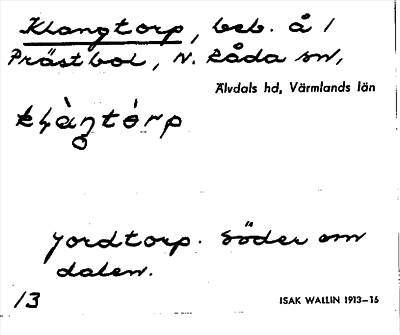 Klangtorp, beb. å 1
Prästbol, N. Råda sn,
Älvdals hd, Värmlands län
jordtorp. Söder om
dalen.
13 ISAK WALLIN 1913–15